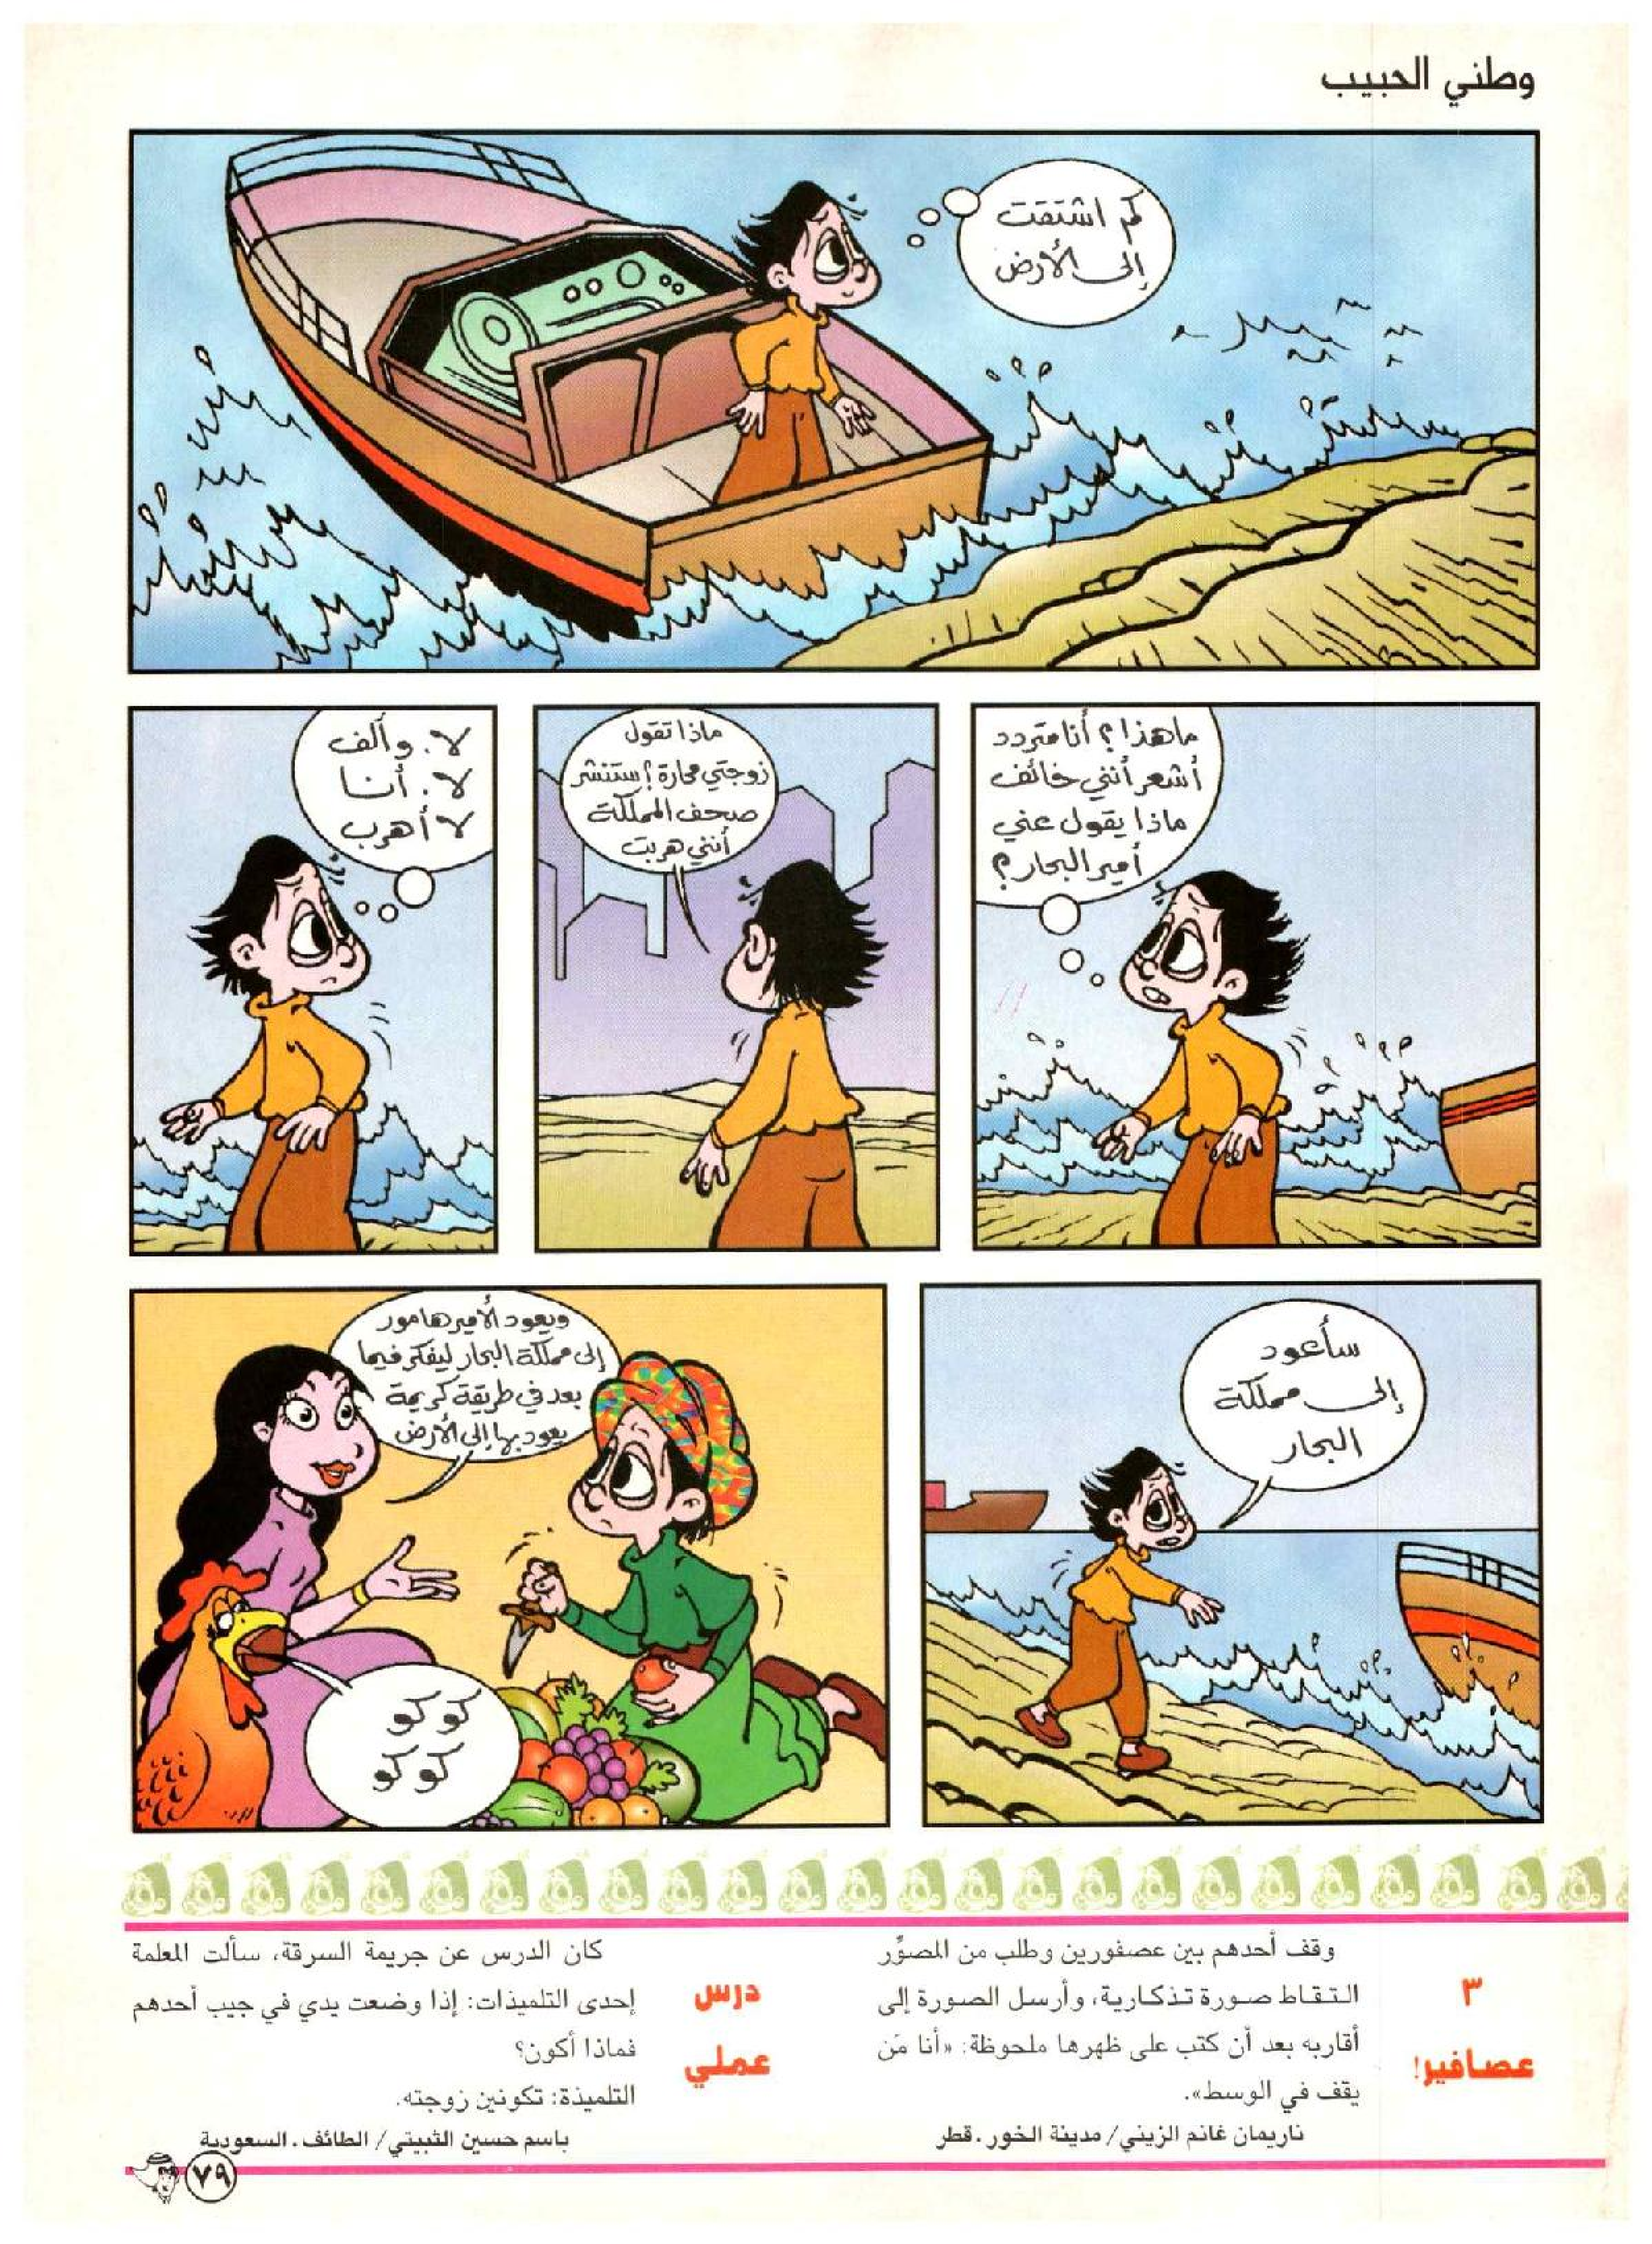 وطني الحبيب
كم اشتقت
إلى الأرض
ما هذا؟ أنا متردد
أشعر أنني خائف
ماذا يقول عني
أمير البحار؟
ماذا تقول
زوجتي محارة؟ ستنشر
صحف المملكة
أنني هربت
لا. وألف
لا. أنا
لا أهرب
سأعود
إلى مملكة
البحار
ويعود الأمير هامور
إلى مملكة البحار ليفكر فيما
بعد في طريقة كريمة
يعود بها إلى الأرض
كو كو
كو كو
٣
عصافير!
وقف أحدهم بين عصفورين وطلب من المصوِّر
التقاط صورة تذكارية، وأرسل الصورة إلى
أقاربه بعد أن كتب على ظهرها ملحوظة: «أنا مَن
يقف في الوسط».
ناريمان غانم الزيني/ مدينة الخور. قطر
درس
عملي
كان الدرس عن جريمة السرقة، سألت المعلمة
إحدى التلميذات: إذا وضعت يدي في جيب أحدهم
فماذا أكون؟
التلميذة: تكونين زوجته.
باسم حسين الثبيتي/ الطائف. السعودية
٧٩